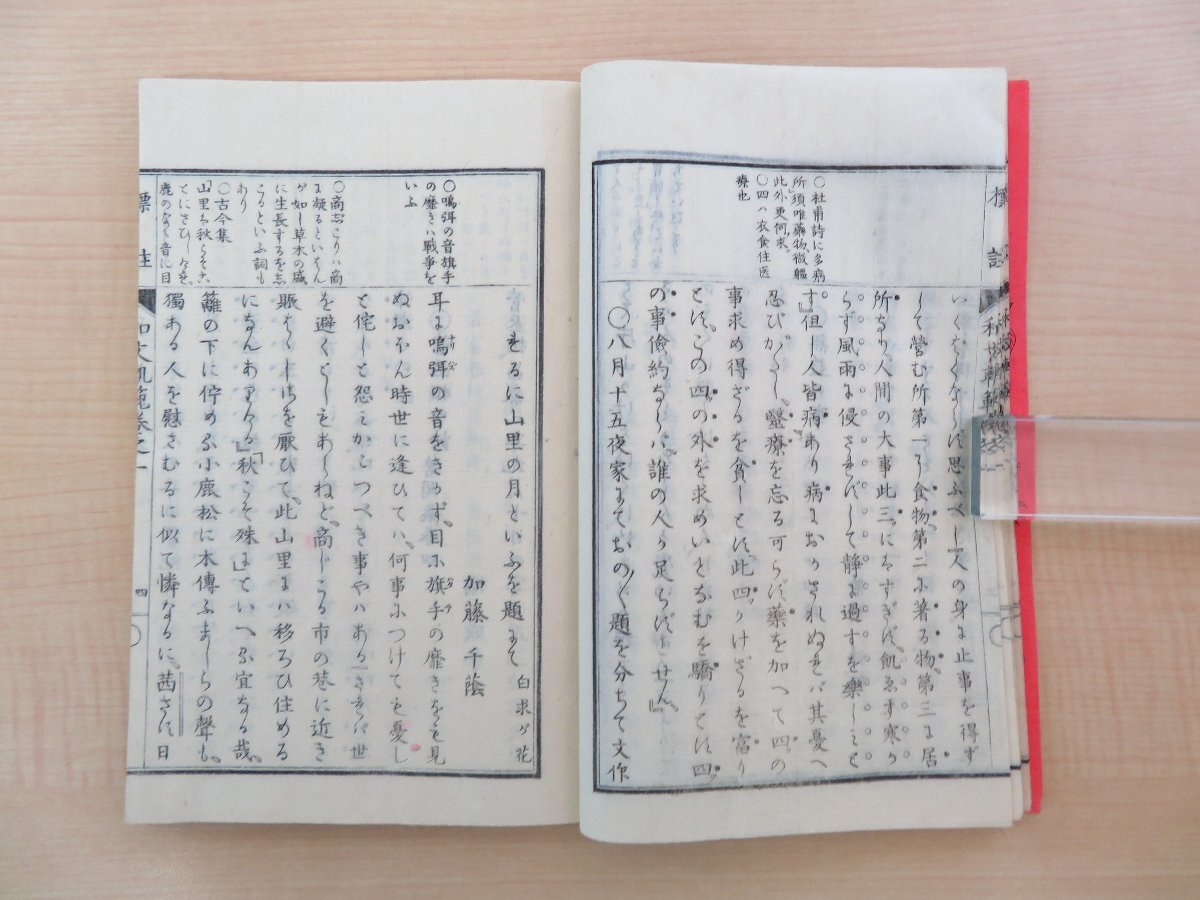 〇杜甫詩に多病
所須唯藥物微軀
此外更何求。
〇四ハ衣食住医
療也
いくばくならず思ふべし人の身に止事を得ず
して營む所第一に食物、第二に著る物、第三に居
所なり人間の大事此三にはすぎず、飢ゑず寒か
らず風雨に侵さず
して静に過すを樂しミと
す。但し人皆病あり病におかされぬれバ其憂へ
忍びがたし、醫療を忘る可らず藥を加へて四の
事求め得ざるを貧しとす、此四かけざるを富り
とす、この四の外を求めいとなむを驕りとす四
の事儉約ならバ、誰の人か足らずとせん。』
〇八月十五夜家にておの〳〵題を分ちて文作
標註
〇鳴弭の音旗手
の靡きハ戰爭を
いふ
〇商じこりハ商
に凝るといはん
が如し草木の盛
に生長するをしこ
るといふ詞も
あり
〇古今集
「山里ハ秋こそこ
とにわびしけれ
鹿のなく音に目
けるに山里の月といふを題にて 白求ガ花
加藤千蔭
耳に鳴弭の音をきかず、目に旗手の靡きをも見
ぬおほん時世に逢ひてハ、何事につけても憂し
と侘しと怨ミかこつべき事やハある、さきハ世
を避くとしもあらねど、商じこる市の巷に近き
賑ハしきを厭ひて、此山里にハ移ろひ住める
になんありける』「秋こそ殊に」ていへる宜なる哉、
籬の下に佇める小鹿松に木傳ふましらの聲も、
獨ある人を慰さむるに似て憐なるに、茜さす日
標註
和文軌範卷之一
四